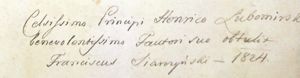 Celsissimo Principi Henrico Lubomirsk
benevolentissimo Fautori suo obtulit
Franciscus Siarczyński – 1824.